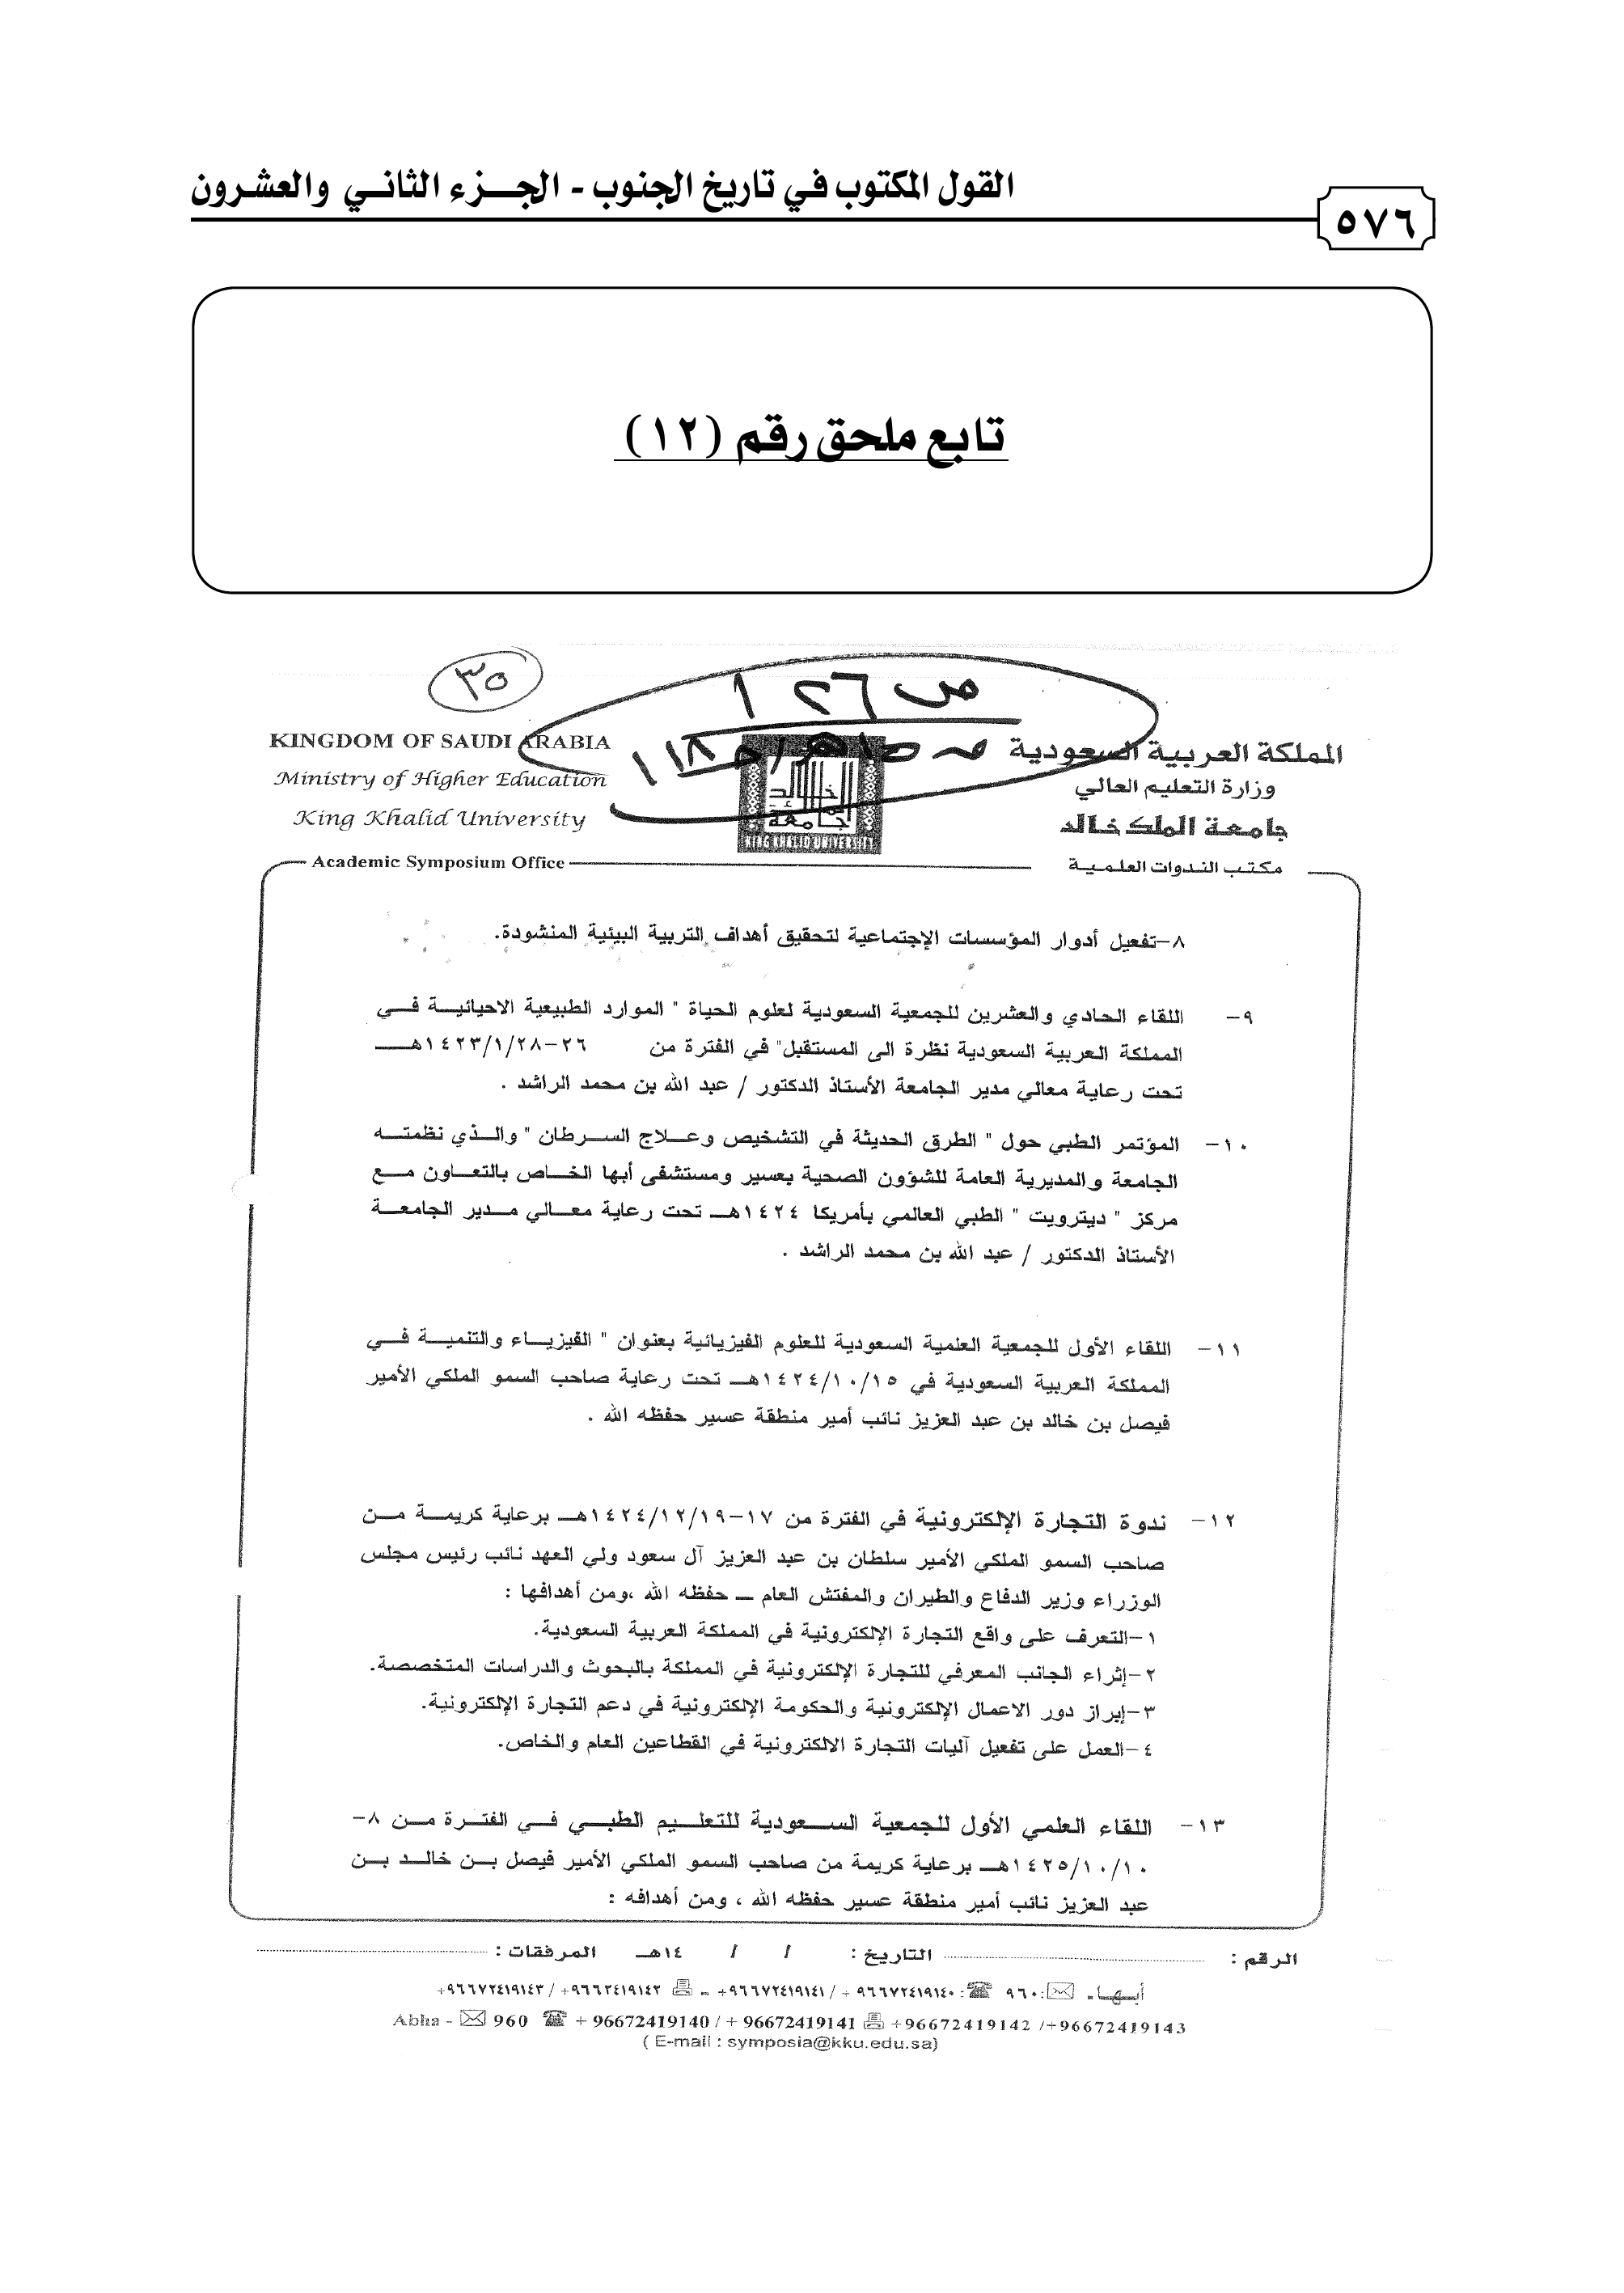 القول المكتوب في تاريخ الجنوب - الجـــزء الثانــي والعشـرون
٥٧٦
تابع ملحق رقم (١٢)
٣٥
ص ١٢٦
KINGDOM OF SAUDI ARABIA
Ministry of Higher Education
King Khalid University
Academic Symposium Office
المملكة العربية السعودية
وزارة التعليم العالي
جامعة الملك خالد
مكتب الندوات العلمية
جامعة الملك خالد
KING KHALID UNIVERSITY
٨-تفعيل أدوار المؤسسات الإجتماعية لتحقيق أهداف التربية البيئية المنشودة.
٩- اللقاء الحادي والعشرين للجمعية السعودية لعلوم الحياة " الموارد الطبيعية الاحيائيـــة فـــي
المملكة العربية السعودية نظرة الى المستقبل" في الفترة من ٢٦-١٤٢٣/١/٢٨هـــــ
تحت رعاية معالي مدير الجامعة الأستاذ الدكتور / عبد الله بن محمد الراشد .
١٠- المؤتمر الطبي حول " الطرق الحديثة في التشخيص وعـــلاج الســـرطان " والـــذي نظمتـــه
الجامعة والمديرية العامة للشؤون الصحية بعسير ومستشفى أبها الخـــاص بالتعـــاون مـــع
مركز " ديترويت " الطبي العالمي بأمريكا ١٤٢٤هـــ تحت رعاية معـــالي مـــدير الجامعـــة
الأستاذ الدكتور / عبد الله بن محمد الراشد .
١١- اللقاء الأول للجمعية العلمية السعودية للعلوم الفيزيائية بعنوان " الفيزيـــاء والتنميـــة فـــي
المملكة العربية السعودية في ١٤٢٤/١٠/١٥هـــ تحت رعاية صاحب السمو الملكي الأمير
فيصل بن خالد بن عبد العزيز نائب أمير منطقة عسير حفظه الله .
١٢- ندوة التجارة الإلكترونية في الفترة من ١٧-١٤٢٤/١٢/١٩هـــ برعاية كريمـــة مـــن
صاحب السمو الملكي الأمير سلطان بن عبد العزيز آل سعود ولي العهد نائب رئيس مجلس
الوزراء وزير الدفاع والطيران والمفتش العام ـــ حفظه الله ،ومن أهدافها :
١-التعرف على واقع التجارة الإلكترونية في المملكة العربية السعودية.
٢-إثراء الجانب المعرفي للتجارة الإلكترونية في المملكة بالبحوث والدراسات المتخصصة.
٣-إبراز دور الاعمال الإلكترونية والحكومة الإلكترونية في دعم التجارة الإلكترونية.
٤-العمل على تفعيل آليات التجارة الالكترونية في القطاعين العام والخاص.
١٣- اللقاء العلمي الأول للجمعية الســـعودية للتعلـــيم الطبـــي فـــي الفتـــرة مـــن ٨-
١٤٢٥/١٠/١٠هـــ برعاية كريمة من صاحب السمو الملكي الأمير فيصل بـــن خالـــد بـــن
عبد العزيز نائب أمير منطقة عسير حفظه الله ، ومن أهدافه :
الرقم : التاريخ : / / ١٤هـ المرفقات :
أبـهـا- ٩٦٠: ٩٦٦٧٢٤١٩١٤٠+ / ٩٦٦٧٢٤١٩١٤١+ - ٩٦٦٢٤١٩١٤٢+ / ٩٦٦٧٢٤١٩١٤٣+
Abha - 960 + 96672419140 / + 96672419141 +96672419142 /+96672419143
( E-mail : symposia@kku.edu.sa)